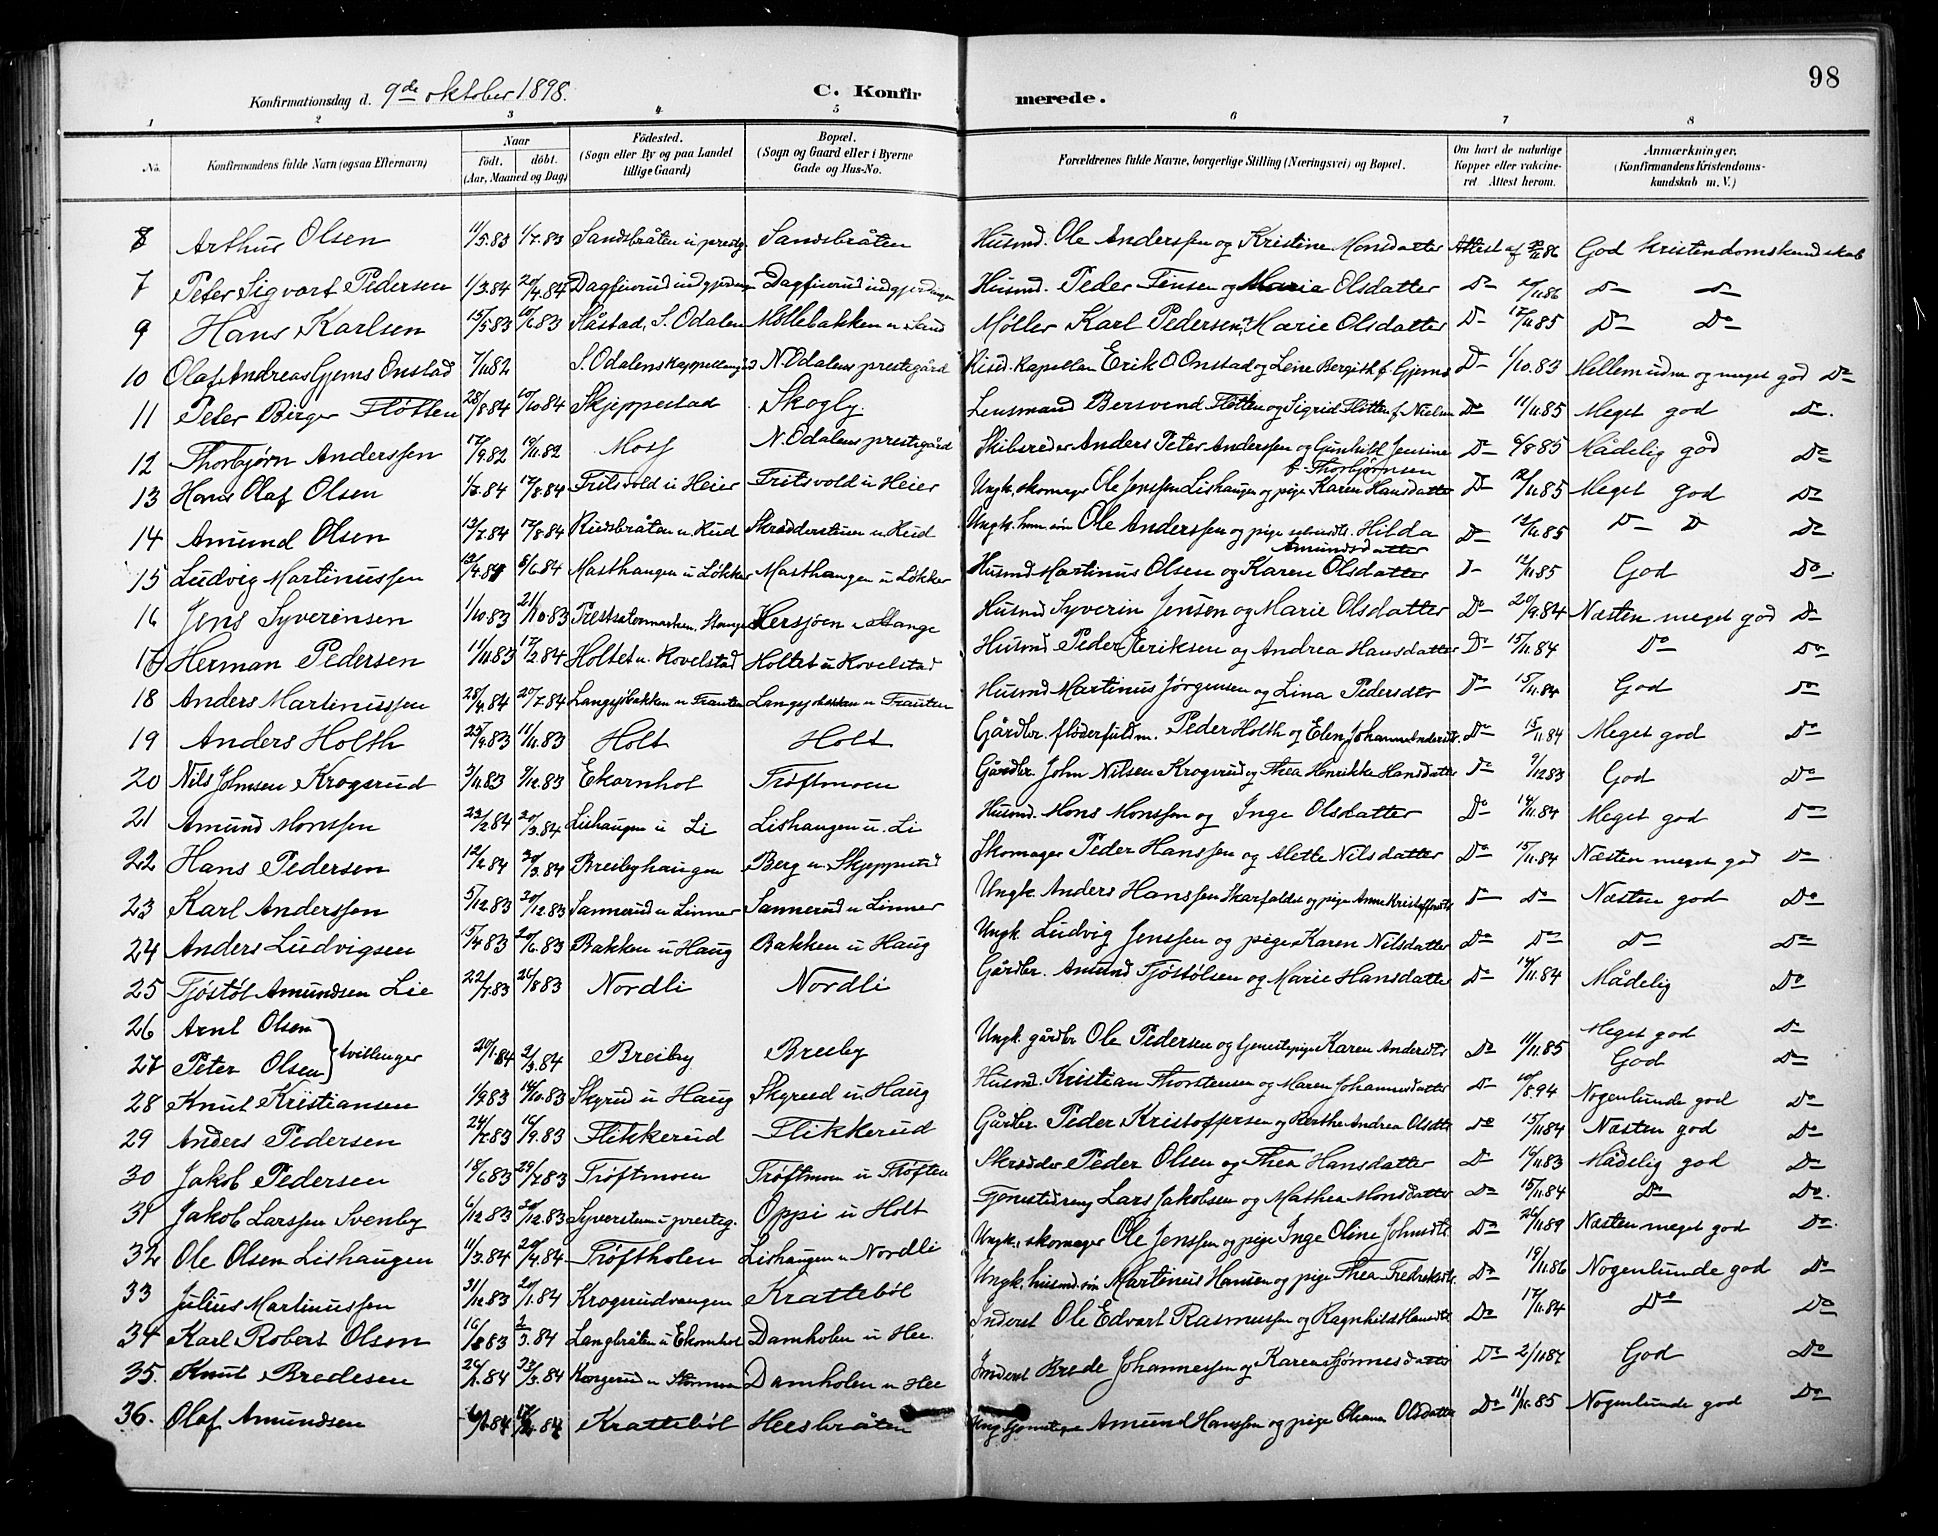 98
Konfirmationsdag d. 9de oktober 1898. C. Konfirmerede.
1 2 3 4 5 6 7 8
No. Konfirmandens fulde Navn (ogsaa Efternavn) Naar født. døbt. (Aar, Maaned og Dag) Födested. (Sogn eller By og paa Landet tillige Gaard) Bopæl. (Sogn og Gaard eller i Byerne Gade og Hus-No. Forældrenes fulde Navne, borgerlige Stilling (Næringsvei) og Bopæl. Om havt de naturlige Kopper eller vakcineret Attest herom. Anmærkninger. (Konfirmandens Kristendomskundskab m. V.)
8 Arthur Olsen 11/5.83 1/7.83 Sandsbråten u. prestg. Sandsbråten Husmd. Ole Anderssen og Kristine Monsdatter Attest af God kristendomskundskab
7 Peter Sigvart Pedersen 1/3.84 20/4.84 Husmd. Peder Jensen og Marie Olsdatter Do Do Do
9 Hans Karlsen 15/5.83 10/6.83 Slåstad, S. Odalen Møllebakken u. Sand Møller Karl Pedersen, Marie Olsdatter Do 17/11.85 Do Do
10 Olaf Andreas Gjems Onstad 7/11.82 S. Odalens N. Odalens prestegård Resd. Kapellan Erik O Onstad og Do 1/10.83 Mellem udm og meget god Do
11 Peter Birger Fløtten 28/8.84 19/10.84 Skjeppestad Skogly. Lensmand Bersvend Fløtten og Sigrid Fløtten f. Nielsen Do 11/11.85 Meget god Do.
12 Thorbjørn Anderssen 17/9.82 19/11.82 Moss N. Odalens prestegård Skibsreder Anders Peter Anderssen og Gunhild Jensine f. Thorbjørnsen Do 6/8.85 Mådelig god Do
13 Hans Olaf Olsen 17/8.84 Fritsvold u Heier Fritsvold u Heier Ungk. skomager Ole Jenssen Lishaugen og pige Karen Hansdatter Do 12/11.85 Meget god Do
14 Amund Olsen 13/7.84 17/8.84 Rudsbråten u Rud Skrædderstuen u Rud Ungk. Ole Anderssen og pige Hilda Amundsdatter Do 12/11.85 Do Do Do
15 Ludvig Martinussen 13/4.84 8/6.84 Masthaugen u Løkker Masthaugen u Løkker Husmd Martinus Olsen og Karen Olsdatter Do 12/11.85 God Do.
16 Jens Syverinsen 1/10.83 21/10.83 Hersjøen Stange Husmd Syverin Jensen og Marie Olsdatter Do 20/9.84 Næsten meget god Do
17 Herman Pedersen 11/11.83 17/2.84 Holtet u. Kovelstad Holtet u Kovelstad Husmd Peder Eriksen og Andrea Hansdatter Do 15/11.84 Do Do
18 Anders Martinussen 28/4.84 20/7.84 Langsjøbakken u Frauten Langsjøbakken u Frauten Husmd Martinus Jørgensen og Lina Pedersdtr Do 15/11.84 God Do
19 Anders Holth 25/9.83 11/11.83 Holt Holt Gårdbr. fløderfuldm. Peder Holth og Elen Johanne Andersdtr Do 15/11.84 Meget god Do
20 Nils Johnsen Krogsrud 3/11.83 9/12.83 Ekornhol Trøftmoen Gårdbr. John Nilsen Krogsrud og Thea Henrikke Hansdatter Do 9/12.83 God Do
21 Amund Monssen 23/2.84 20/3.84 Lishaugen u Li Lishaugen u. Li Husmd. Mons Monssen og Inge Olsdatter Do 14/11.84 Meget god Do
22 Hans Pedersen 12/2.84 30/3.84 Breibyhaugen Berg u. Skjeppestad Skomager Peder Hanssen og Alette Nilsdatter Do 15/11.84 Næsten meget god Do
23 Karl Anderssen 5/12.83 20/12.83 Sannerud u Linner Sannerud u Linner Ungk. Anders Hanssen Skarfaldet og pige Anne Kristoffersdtr Do Do Næsten god Do
24 Anders Ludvigsen 15/4.83 20/6.83 Bakken u Haug Bakken u Haug Ungk. Ludvig Jenssen og pige Karen Nilsdatter Do Do Do Do
25 Tjøstøl Amundsen Lie 22/7.83 26/8.83 Nordli Nordli Gårdbr. Amund Tjøstølsen og Marie Hansdatter Do 14/11.84 Mådelig Do
26 Arnt Olsen Meget god Do
27 Peter Olsen tvillinger 20/1.84 2/3.84 Breiby Breiby Ungk. gårdbr Ole Pedersen og pige Karen Andersdtr Do 11/11.85 God Do
28 Knut Kristiansen 1/9.83 14/10.83 Skyrud u Haug Skyrud u. Haug Husmd. Kristian Thorstensen og Maren Johannesdatter Do 10/8.94 Nogenlunde god Do
29 Anders Pedersen 24/7.83 16/9.83 Flikkerud Flikkerud Gårdbr. Peder Kristoffersen og Berthe Andrea Olsdtr Do 15/11.84 Næsten god Do
30 Jakob Pedersen 18/6.83 29/7.83 Trøftmoen Trøftmoen u Trøften Skrædder Peder Olsen og Thea Hansdatter Do 16/11.83 Mådelig god Do
31 Jakob Larssen Svenby 6/12.83 26/12.83 Syverstuen u presteg. Oppi u Holt Tjenestedreng Lars Jakobsen og Mathea Monsdatter Do 15/11.84 Do Do.
32 Ole Olsen Lishaugen 11/3.84 20/4.84 Trøftholen Lishaugen u Nordli Ungk., skomager Ole Jenssen og pige Inge Oline Johnsdtr Do 26/11.89 Næsten meget god Do.
33 Julius Martinussen 31/12.83 20/1.84 Krogsrudvangen Krattebøl Ungk. husmd. søn Martinus Hansen og pige Thea Fredriksdtr. Do 19/11.86 Nogenlunde god Do
34 Karl Robert Olsen 16/8.83 2/3.84 Langbråten u Ekornhol Damholen u Hee. Inderst Ole Edvart Rasmussen og Ragnhild Hansdtr Do 17/11.84 Do Do
35. Knut Bredesen 23/3.84 Damholen u Hee Inderst Brede Johannessen og Karen Do 2/11.87 God Do
36. Olaf Amundsen Krattebøl Heesbråten Amund Hanssen og pige Oleana Olsdatter Do 11/11.85 Nogenlunde god Do